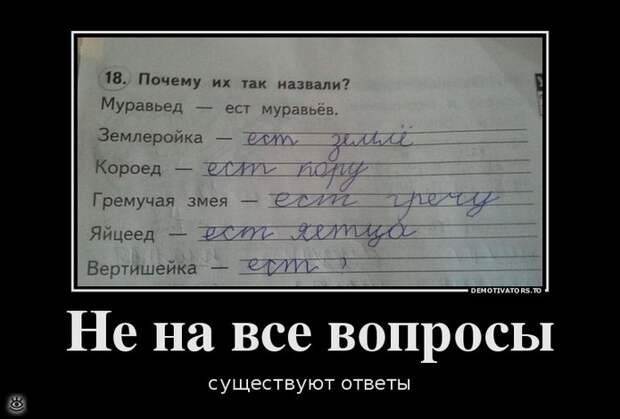 18. Почему их так назвали?
Муравьед — ест муравьёв.
Землеройка — ест землё
Короед — ест пору
Гремучая змея — ест гречу
Яйцеед — ест яетца
Вертишейка — ест
DEMOTIVATORS.TO
Не на все вопросы
существуют ответы